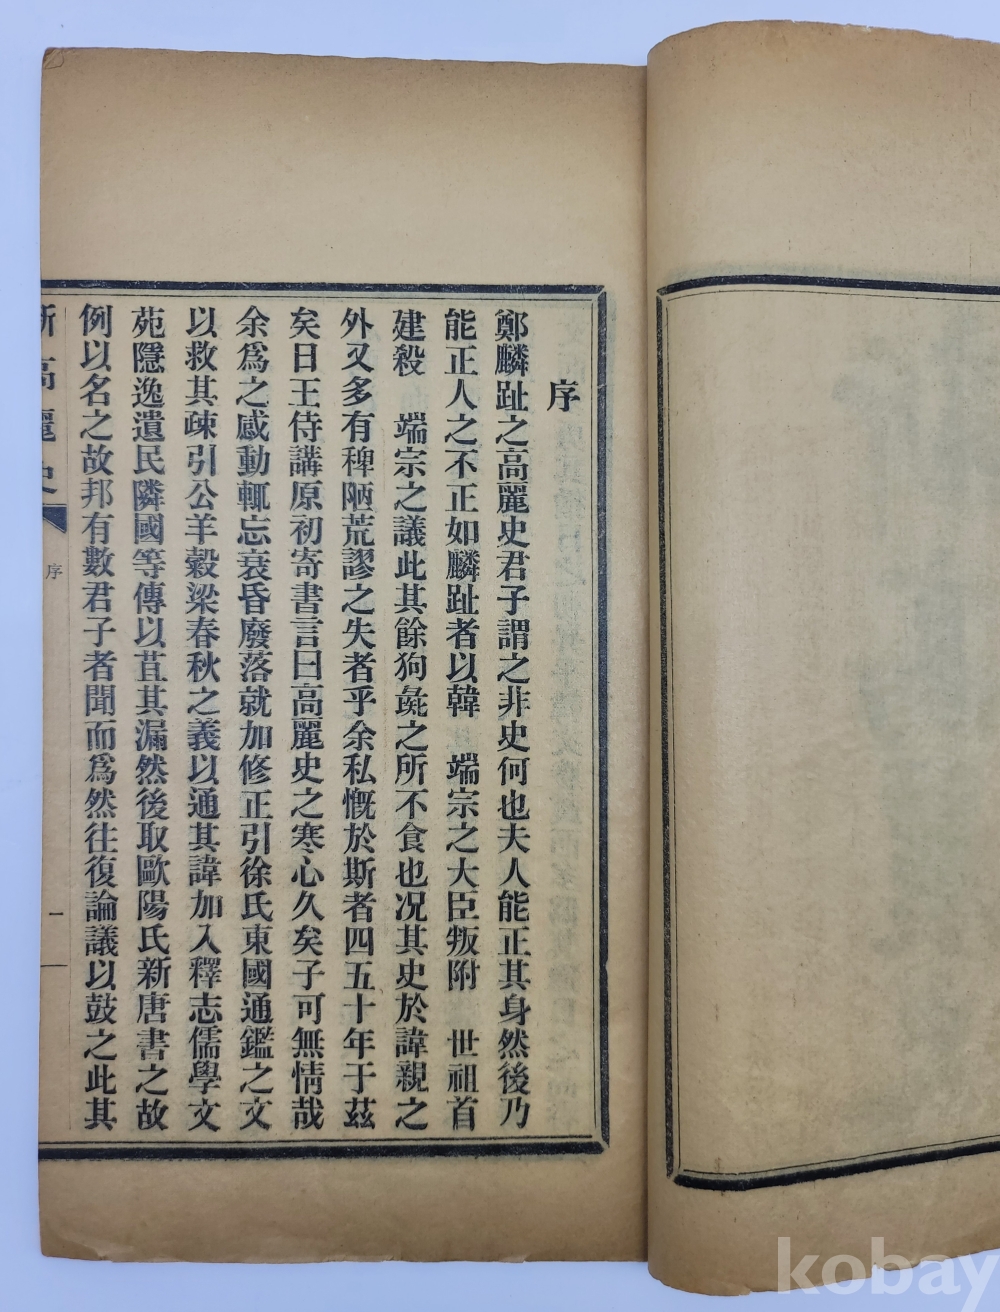 序
鄭麟趾之高麗史君子謂之非史何也夫人能正其身然後乃
能正人之不正如麟趾者以韓　端宗之大臣叛附　世祖首
建殺　端宗之議此其餘狗彘之所不食也況其史於諱親之
外又多有稗陋荒謬之失者乎余私慨於斯者四五十年于茲
矣日王侍講原初寄書言曰高麗史之寒心久矣子可無情哉
余爲之感動輒忘衰昏廢落就加修正引徐氏東國通鑑之文
以救其疎引公羊穀梁春秋之義以通其諱加入釋志儒學文
苑隱逸遺民隣國等傳以苴其漏然後取歐陽氏新唐書之故
例以名之故邦有數君子者聞而爲然往復論議以鼓之此其
新高麗史
序
一
kobay